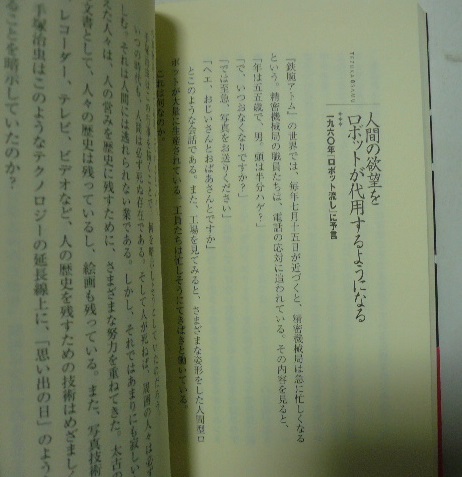 TEZUKA OSAMU
人間の欲望を
ロボットが代用するようになる
一九六〇年「ロボット流し」に予言
『鉄腕アトム』の世界では、毎年七月十五日が近づくと、精密機械局は急に忙しくなる
という。精密機械局の職員たちは、電話の応対に追われている。その内容を見ると、
「年は五五歳で、男。頭は半分ハゲ？」
「で、いつおなくなりですか？」
「では至急、写真をお送りください」
「ヘエ、おじいさんとおばあさんとですか」
とこのような会話である。また、工場を見てみると、さまざまな姿形をした人間型ロ
ボットが大量に生産されている。工員たちは忙しそうにてきぱきと働いている。
これは何なのか。
いつの時代も、人間は必ず死ぬ存在である。そして人が死ねば、周囲の人々は必ず
しむ。それは人間には逃れられない業である。しかし、それではあまりにも寂しい
えた人々は、人の営みを歴史に残すために、さまざまな努力を重ねてきた。太古の
文書として、人々の歴史は残っているし、絵画も残っている。また、写真技術
レコーダー、テレビ、ビデオなど、人の歴史を残すための技術はめざましく
手塚治虫はこのようなテクノロジーの延長線上に、「思い出の日」のよう
ることを暗示していたのか？